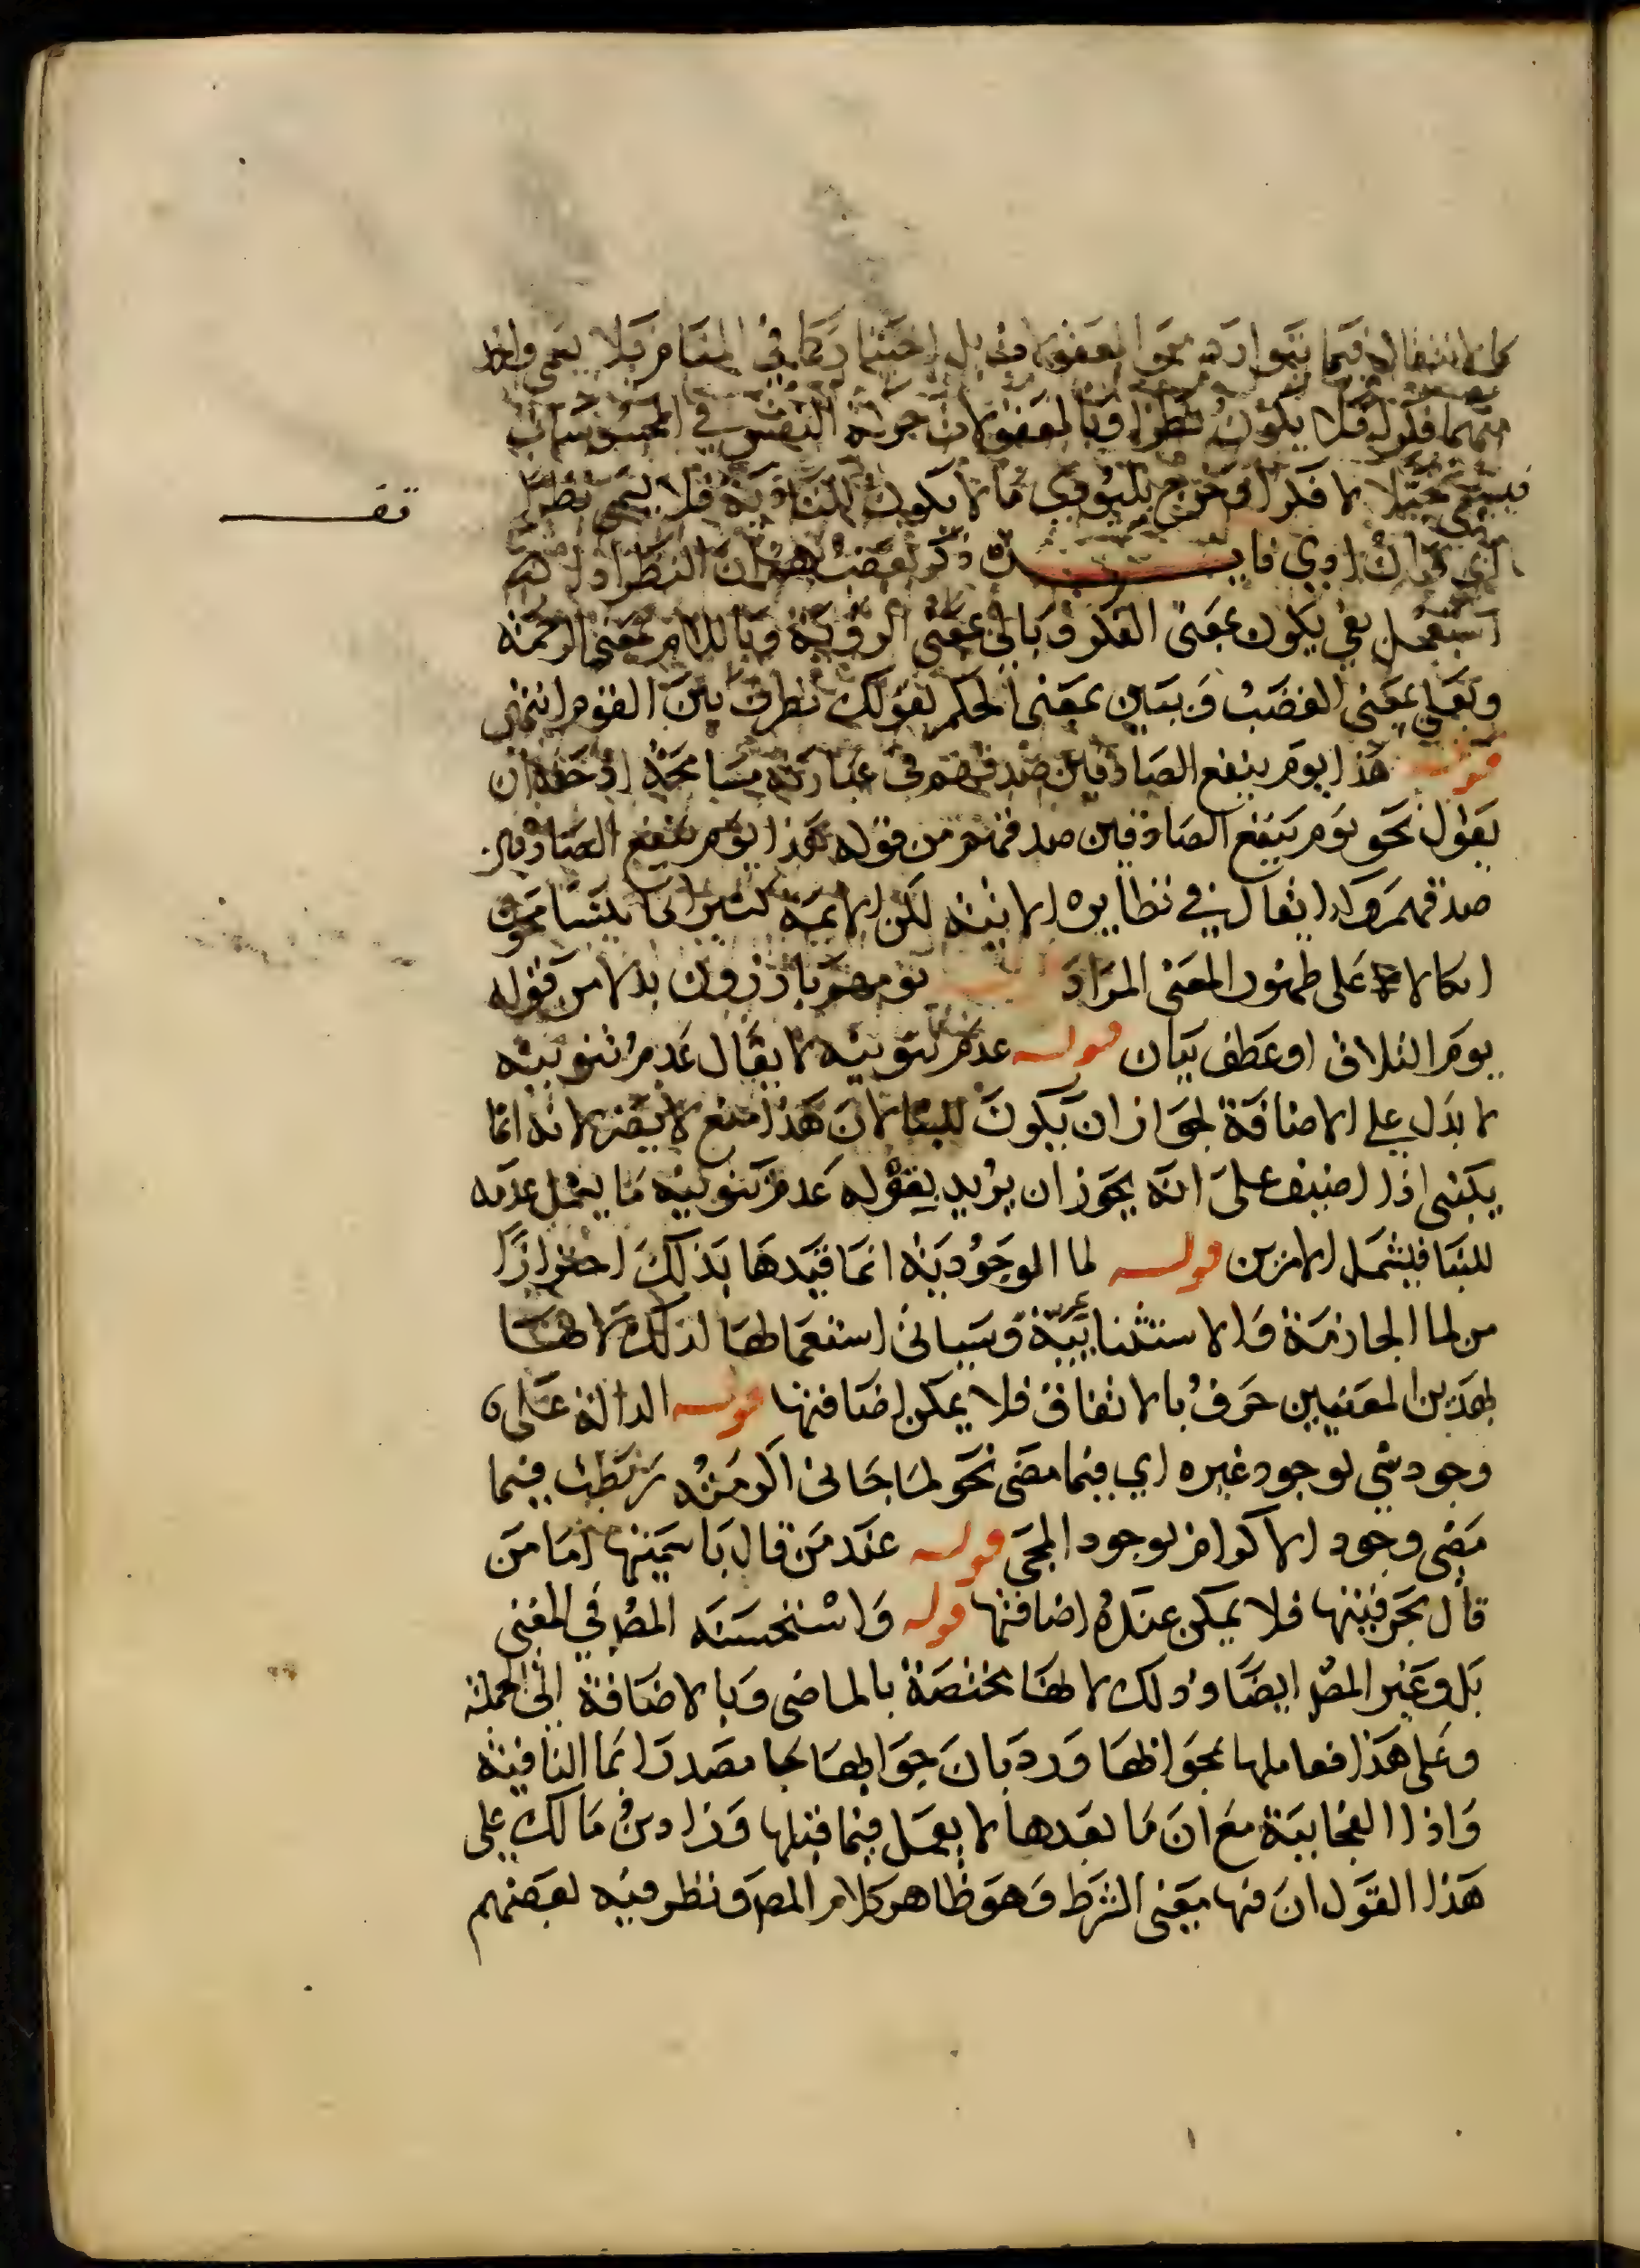 فيما يتوارد من المعقولات بلا اختيار كما في المنام فلا يسمى واحد
منهما فكرا ولا يكون نظرا وبالمعقولات حركة النفس في المحسوسات
فيسمى تخيلا لا فكرا وخرج بليؤدي ما لا يكون للتأدية فلا يسمى نظرا
فايدة ذكر بعضهم ان النظر اذا
استعمل بفي يكون بمعنى الفكر وبالى بمعنى الروية وباللام بمعنى الرحمة
وبعلى بمعنى الغضب وببين بمعنى الحكم كقولك نظرت بين القوم انتهى
قوله هذا يوم ينفع الصادقين صدقهم في عبارته مسامحة اذ حقه ان
يقول نحو يوم ينفع الصادقين صدقهم من قوله هذا يوم ينفع الصادقين
صدقهم وكذا يقال في نظايره الاتية لكن الائمة كثيرا ما يتسامحون
اتكالا على ظهور المعنى المراد يوم هم بارزون بدلا من قوله
يوم التلاق او عطف بيان قوله عدم تنوينه لا يقال عدم تنوينه
لا يدل على الاضافة لجواز ان يكون للبنا لان هذا منع لا يضر لانه انما
يبنى اذا اضيف على انه يجوز ان يريد بقوله عدم تنوينه ما يشمل عدمه
للبنا فيشمل الامرين قوله لما الوجودية انما قيدها بذلك احترازا
من لما الجازمة والاستثنائية وسياتي استعمالها لذلك لانها
بهذين المعنيين حرف بالاتفاق فلا يمكن اضافتها قوله الدالة على
وجود شي لوجود غيره اي فيما مضى نحو لما جاني اكرمته ربطت فيما
مضى وجود الاكرام لوجود المجي قوله عند من قال باسميتها اما من
قال بحرفيتها فلا يمكن عنده اضافتها قوله واستحسنه المص في المغني
بل وغير المص ايضا وذلك لانها مختصة بالماضي وبالاضافة الى الجملة
وعلى هذا فعاملها بجوابها ورد بان جوابها جا مصدرا بما النافية
واذا الفجايية مع ان ما بعدها لا يعمل فيما قبلها وزاد بن مالك على
هذا القول ان فيها معنى الشرط وهو ظاهر كلام المص ونظر فيه بعضهم